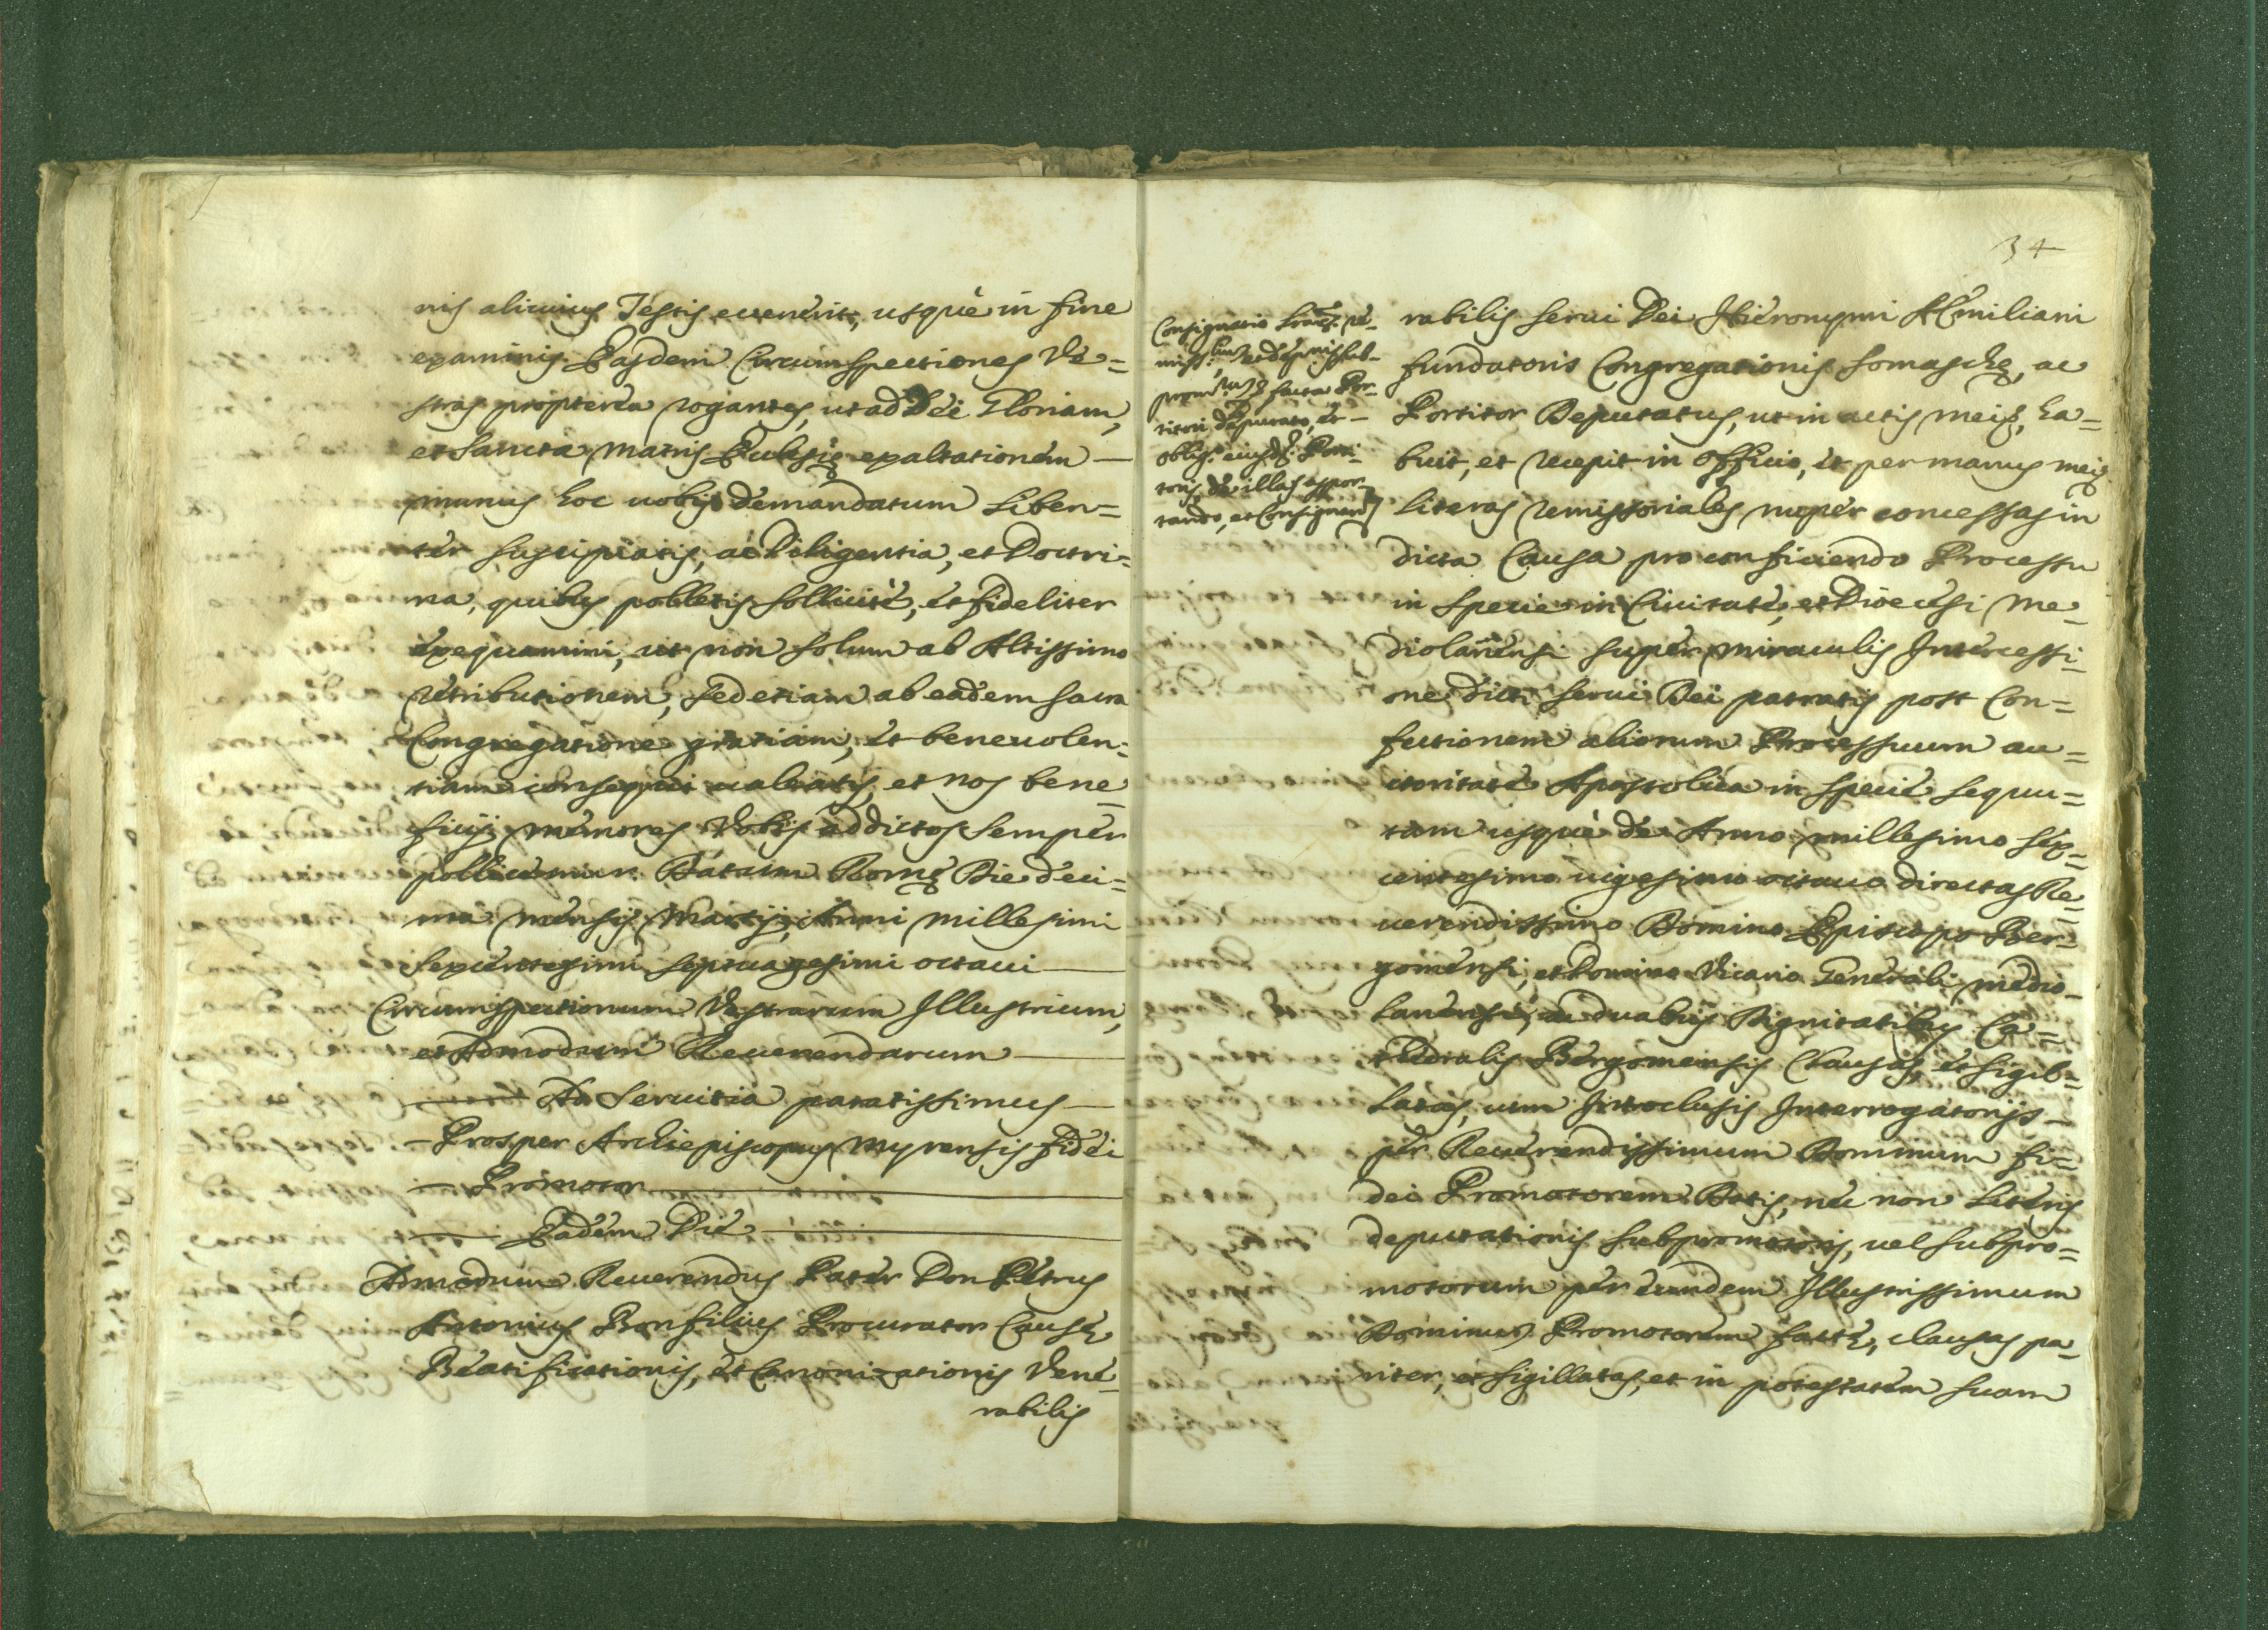 nis alicuius Testis evenerit, usquè in fine
examinis. Easdem Circumspectiones Ve=
stras proptereà rogantes, ut ad Dei Gloriam,
et Sanctæ Matris Ecclesię exaltationem —
munus hoc uobis demandatum liben=
tèr suscipiatis, ac Diligentia, et Doctri=
na, quibus polletis sollicitè, et fideliter
exequamini, ut non solum ab Altissimo
retributionem, sed etiam ab eadem Sacra
Congregatione gratiam, et beneuolen=
tiam consequi ualeatis, et nos bene=
ficij memores Vobis addictos semper
pollicemur. Datum Romę Die deci=
ma mensis Martij, Anni millesimi
sexcentesimi septuagesimi octaui —
Circumspectionum Vestrarum Illustrium,
et Admodum Reuerendarum —
— Ad Seruitia paratissimus —
— Prosper Archiepiscopus Myrensis fidei
— Promotor —
— Eadem Die —
Admodum Reuerendus Pater Don Petrus
Antonius Bonfilius Procurator Causę
Beatificationis, et Canonizationis Vene=
rabilis
34
Consignatio
facta Por=
titori deputato, et —
oblig.
de illas appor=
tando, et Consignand
rabilis Serui Dei Hieronymi Æmiliani
fundatoris Congregationis Somaschę, ac
Portitor Deputatus, ut in actis meis, ha=
buit, et recepit in officio, et per manus meas
literas remissoriales nuper concessas in
dicta Causa pro conficiendo Processu
in specie in Ciuitate, et Diœcesi Me=
diolanensi super miraculis Intercessi=
one dicti Serui Dei patratis post Con=
fectionem aliorum Processuum au=
ctoritate Apostolica in specie sequu=
tam usquè de Anno millesimo sex=
centesimo uigesimo octauo directas Re=
uerendissimo Domino Episcopo Ber=
gomensi, et Domino Vicario Generali Medio=
lanensi, ac duabus Dignitatibus Ca=
thedralis Bergomensis Clausas, et sigil=
latas, cum Introclusis Interrogatorijs —
per Reuerendissimum Dominum fi=
dei Promotorem Datis, nec non literis
deputationis subpromotoris, uel subpro=
motorum per eundem Illustrissimum
Dominum Promotorem factę, clausas pa=
riter, et sigillatas, et in potestatem suam